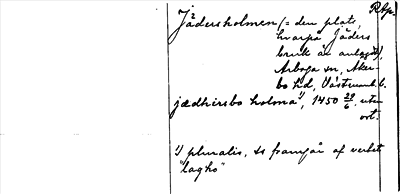 Jädersholmen (= den plats, Rbp.
hvarpå Jäders
bruk är anlagdt),
Arboga sn, Åker-
bo hd, Västmanl.
jædhirsbo holma¹⁾, 1450 29/6. utan
ort.
1) pluralis, ss framgår af verbet
"lagho"